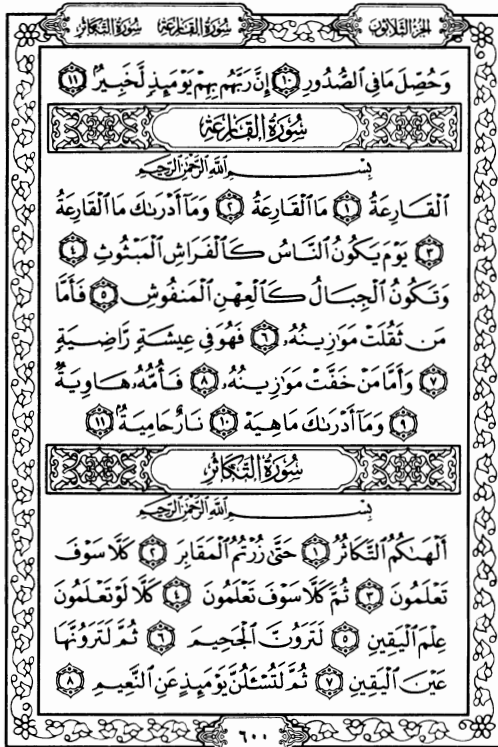 الجزء الثلاثون سورة القارعة سورة التكاثر
وَحُصِّلَ مَا فِي ٱلصُّدُورِ ١٠ إِنَّ رَبَّهُم بِهِمْ يَوْمَئِذٍ لَّخَبِيرٌۢ ١١
سُورَةُ القَارِعَة
بِسْمِ ٱللَّهِ ٱلرَّحْمَٰنِ ٱلرَّحِيمِ
ٱلْقَارِعَةُ ١ مَا ٱلْقَارِعَةُ ٢ وَمَآ أَدْرَىٰكَ مَا ٱلْقَارِعَةُ
٣ يَوْمَ يَكُونُ ٱلنَّاسُ كَٱلْفَرَاشِ ٱلْمَبْثُوثِ ٤
وَتَكُونُ ٱلْجِبَالُ كَٱلْعِهْنِ ٱلْمَنفُوشِ ٥ فَأَمَّا
مَن ثَقُلَتْ مَوَٰزِينُهُۥ ٦ فَهُوَ فِي عِيشَةٍ رَّاضِيَةٍ
٧ وَأَمَّا مَنْ خَفَّتْ مَوَٰزِينُهُۥ ٨ فَأُمُّهُۥ هَاوِيَةٌ
٩ وَمَآ أَدْرَىٰكَ مَا هِيَهْ ١٠ نَارٌ حَامِيَةٌۢ ١١
سُورَةُ التَّكَاثُرِ
بِسْمِ ٱللَّهِ ٱلرَّحْمَٰنِ ٱلرَّحِيمِ
أَلْهَىٰكُمُ ٱلتَّكَاثُرُ ١ حَتَّىٰ زُرْتُمُ ٱلْمَقَابِرَ ٢ كَلَّا سَوْفَ
تَعْلَمُونَ ٣ ثُمَّ كَلَّا سَوْفَ تَعْلَمُونَ ٤ كَلَّا لَوْ تَعْلَمُونَ
عِلْمَ ٱلْيَقِينِ ٥ لَتَرَوُنَّ ٱلْجَحِيمَ ٦ ثُمَّ لَتَرَوُنَّهَا
عَيْنَ ٱلْيَقِينِ ٧ ثُمَّ لَتُسْـَٔلُنَّ يَوْمَئِذٍ عَنِ ٱلنَّعِيمِ ٨
٦٠٠